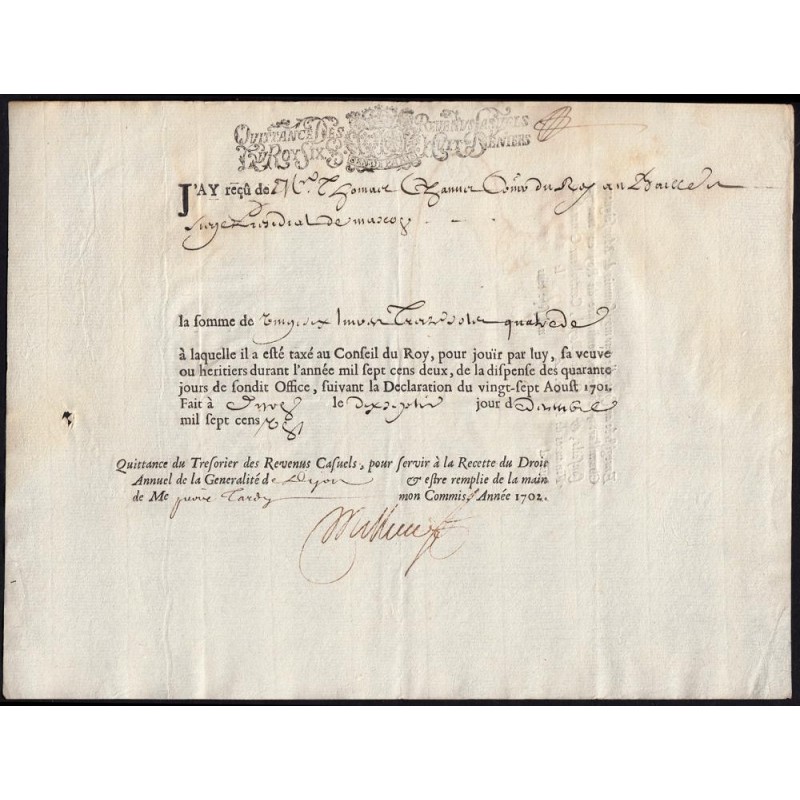 QUITTANCE DES REVENUS CASUELS
DU ROY SIX DENIERS
J'AY reçû de Me Thomas Chanuet Conser du Roy au Baille et
siege Presidial de mascon
la somme de vingt six livres treize sols quatre de
à laquelle il a esté taxé au Conseil du Roy, pour joüir par luy, sa veuve
ou heritiers durant l'année mil sept cens deux, de la dispense des quarante
jours de sondit Office, suivant la Declaration du vingt-sept Aoust 1701.
Fait à le dixseptie jour d Decembre
mil sept cens
Quittance du Tresorier des Revenus Casuels, pour servir à la Recette du Droit
Annuel de la Generalité de Lyon & estre remplie de la main
de Me Tardy mon Commis, Année 1702.